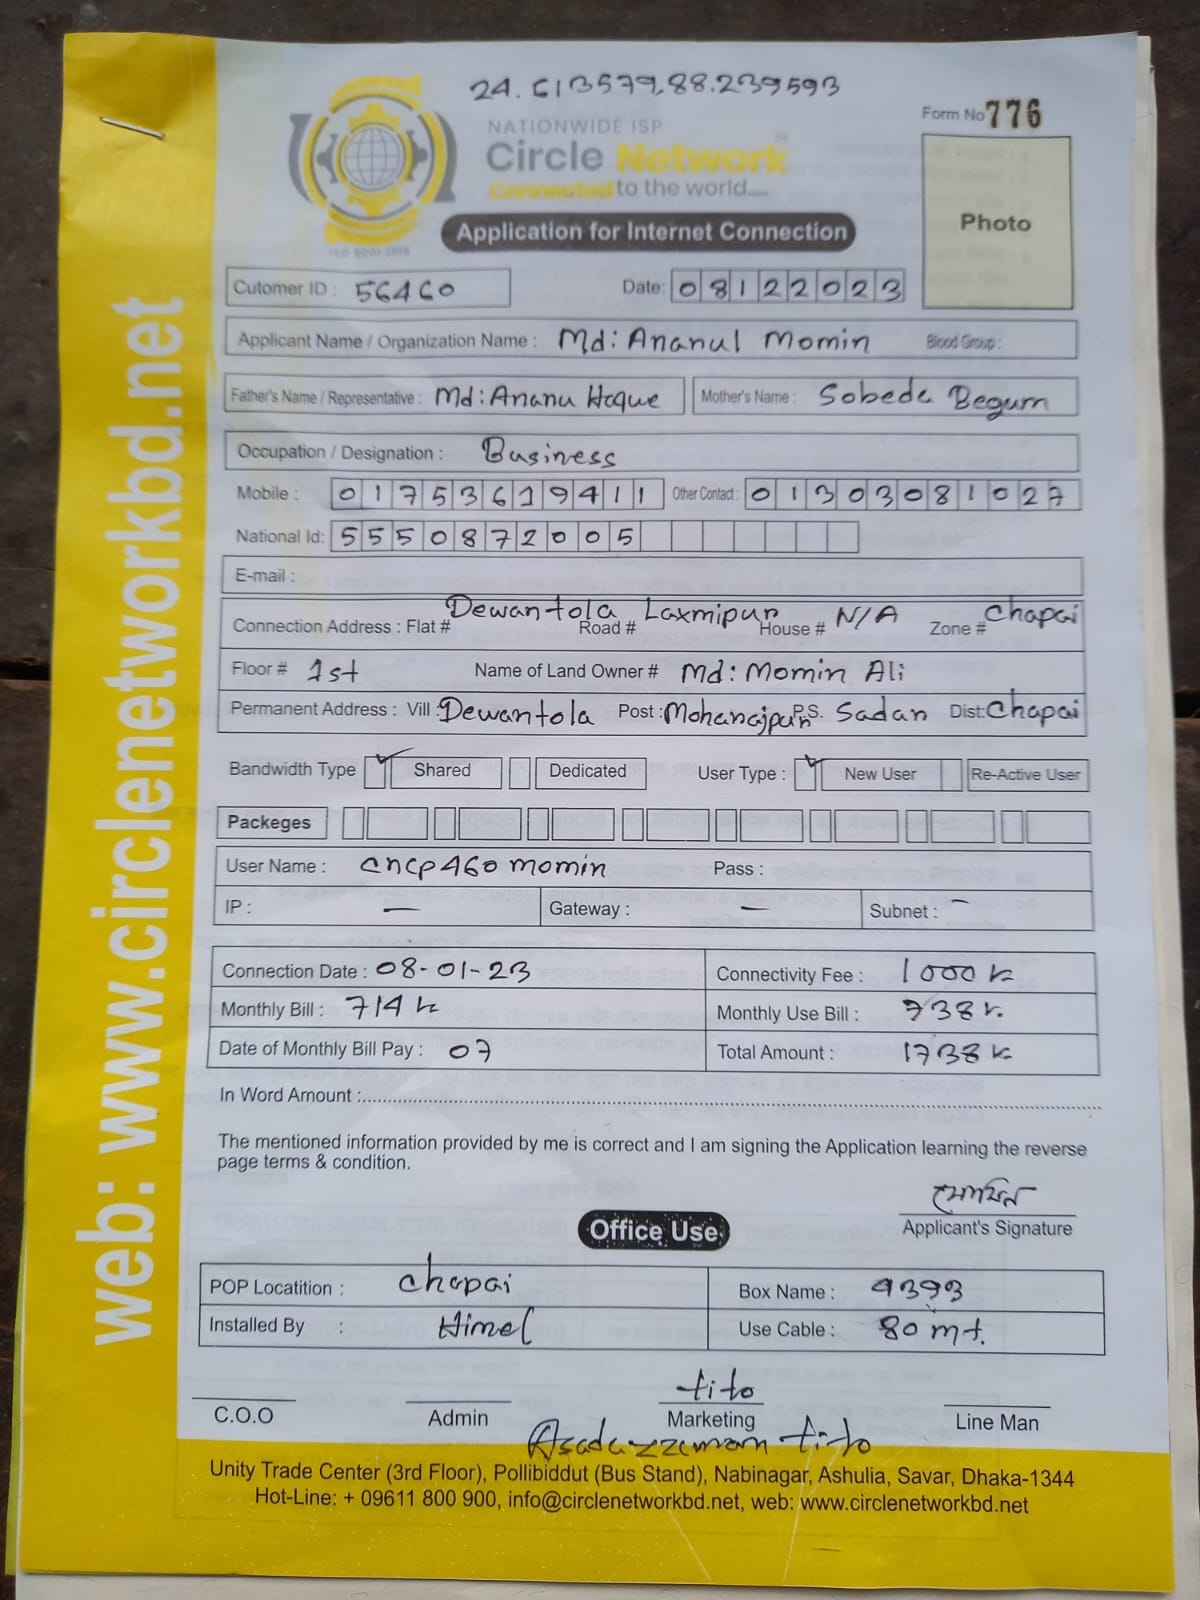 24.613579,88.239593
NATIONWIDE ISP
Form No 776
Circle Network
Connected to the world.....
ISO 9001:2015
Photo
Application for Internet Connection
Cutomer ID : 56460 Date: 08122023
Applicant Name / Organization Name : Md: Ananul Momin Blood Group :
Father's Name / Representative : Md: Ananu Hoque Mother's Name : Sobeda Begum
Occupation / Designation : Business
Mobile : 01753619411 Other Contact : 01303081027
National Id: 5550872005
E-mail :
Connection Address : Flat # Dewantola Road # Laxmipur House # N/A Zone # Chapai
Floor # 1st Name of Land Owner # Md: Momin Ali
Permanent Address : Vill : Dewantola Post : Mohanajpur P.S. Sadar Dist: Chapai
Bandwidth Type ✓ Shared Dedicated User Type : ✓ New User Re-Active User
Packeges
User Name : cncp460momin Pass :
IP : — Gateway : — Subnet : —
Connection Date : 08-01-23 Connectivity Fee : 1000 k
Monthly Bill : 714 k Monthly Use Bill : 738 k.
Date of Monthly Bill Pay : 07 Total Amount : 1738 k
In Word Amount :
The mentioned information provided by me is correct and I am signing the Application learning the reverse
page terms & condition.
মোমিন
Applicant's Signature
Office Use
POP Locatition : Chapai Box Name : 9393
Installed By : Himel Use Cable : 80 mt.
tito
C.O.O Admin Marketing Line Man
Asadazzaman tito
Unity Trade Center (3rd Floor), Pollibiddut (Bus Stand), Nabinagar, Ashulia, Savar, Dhaka-1344
Hot-Line: + 09611 800 900, info@circlenetworkbd.net, web: www.circlenetworkbd.net
web: www.circlenetworkbd.net